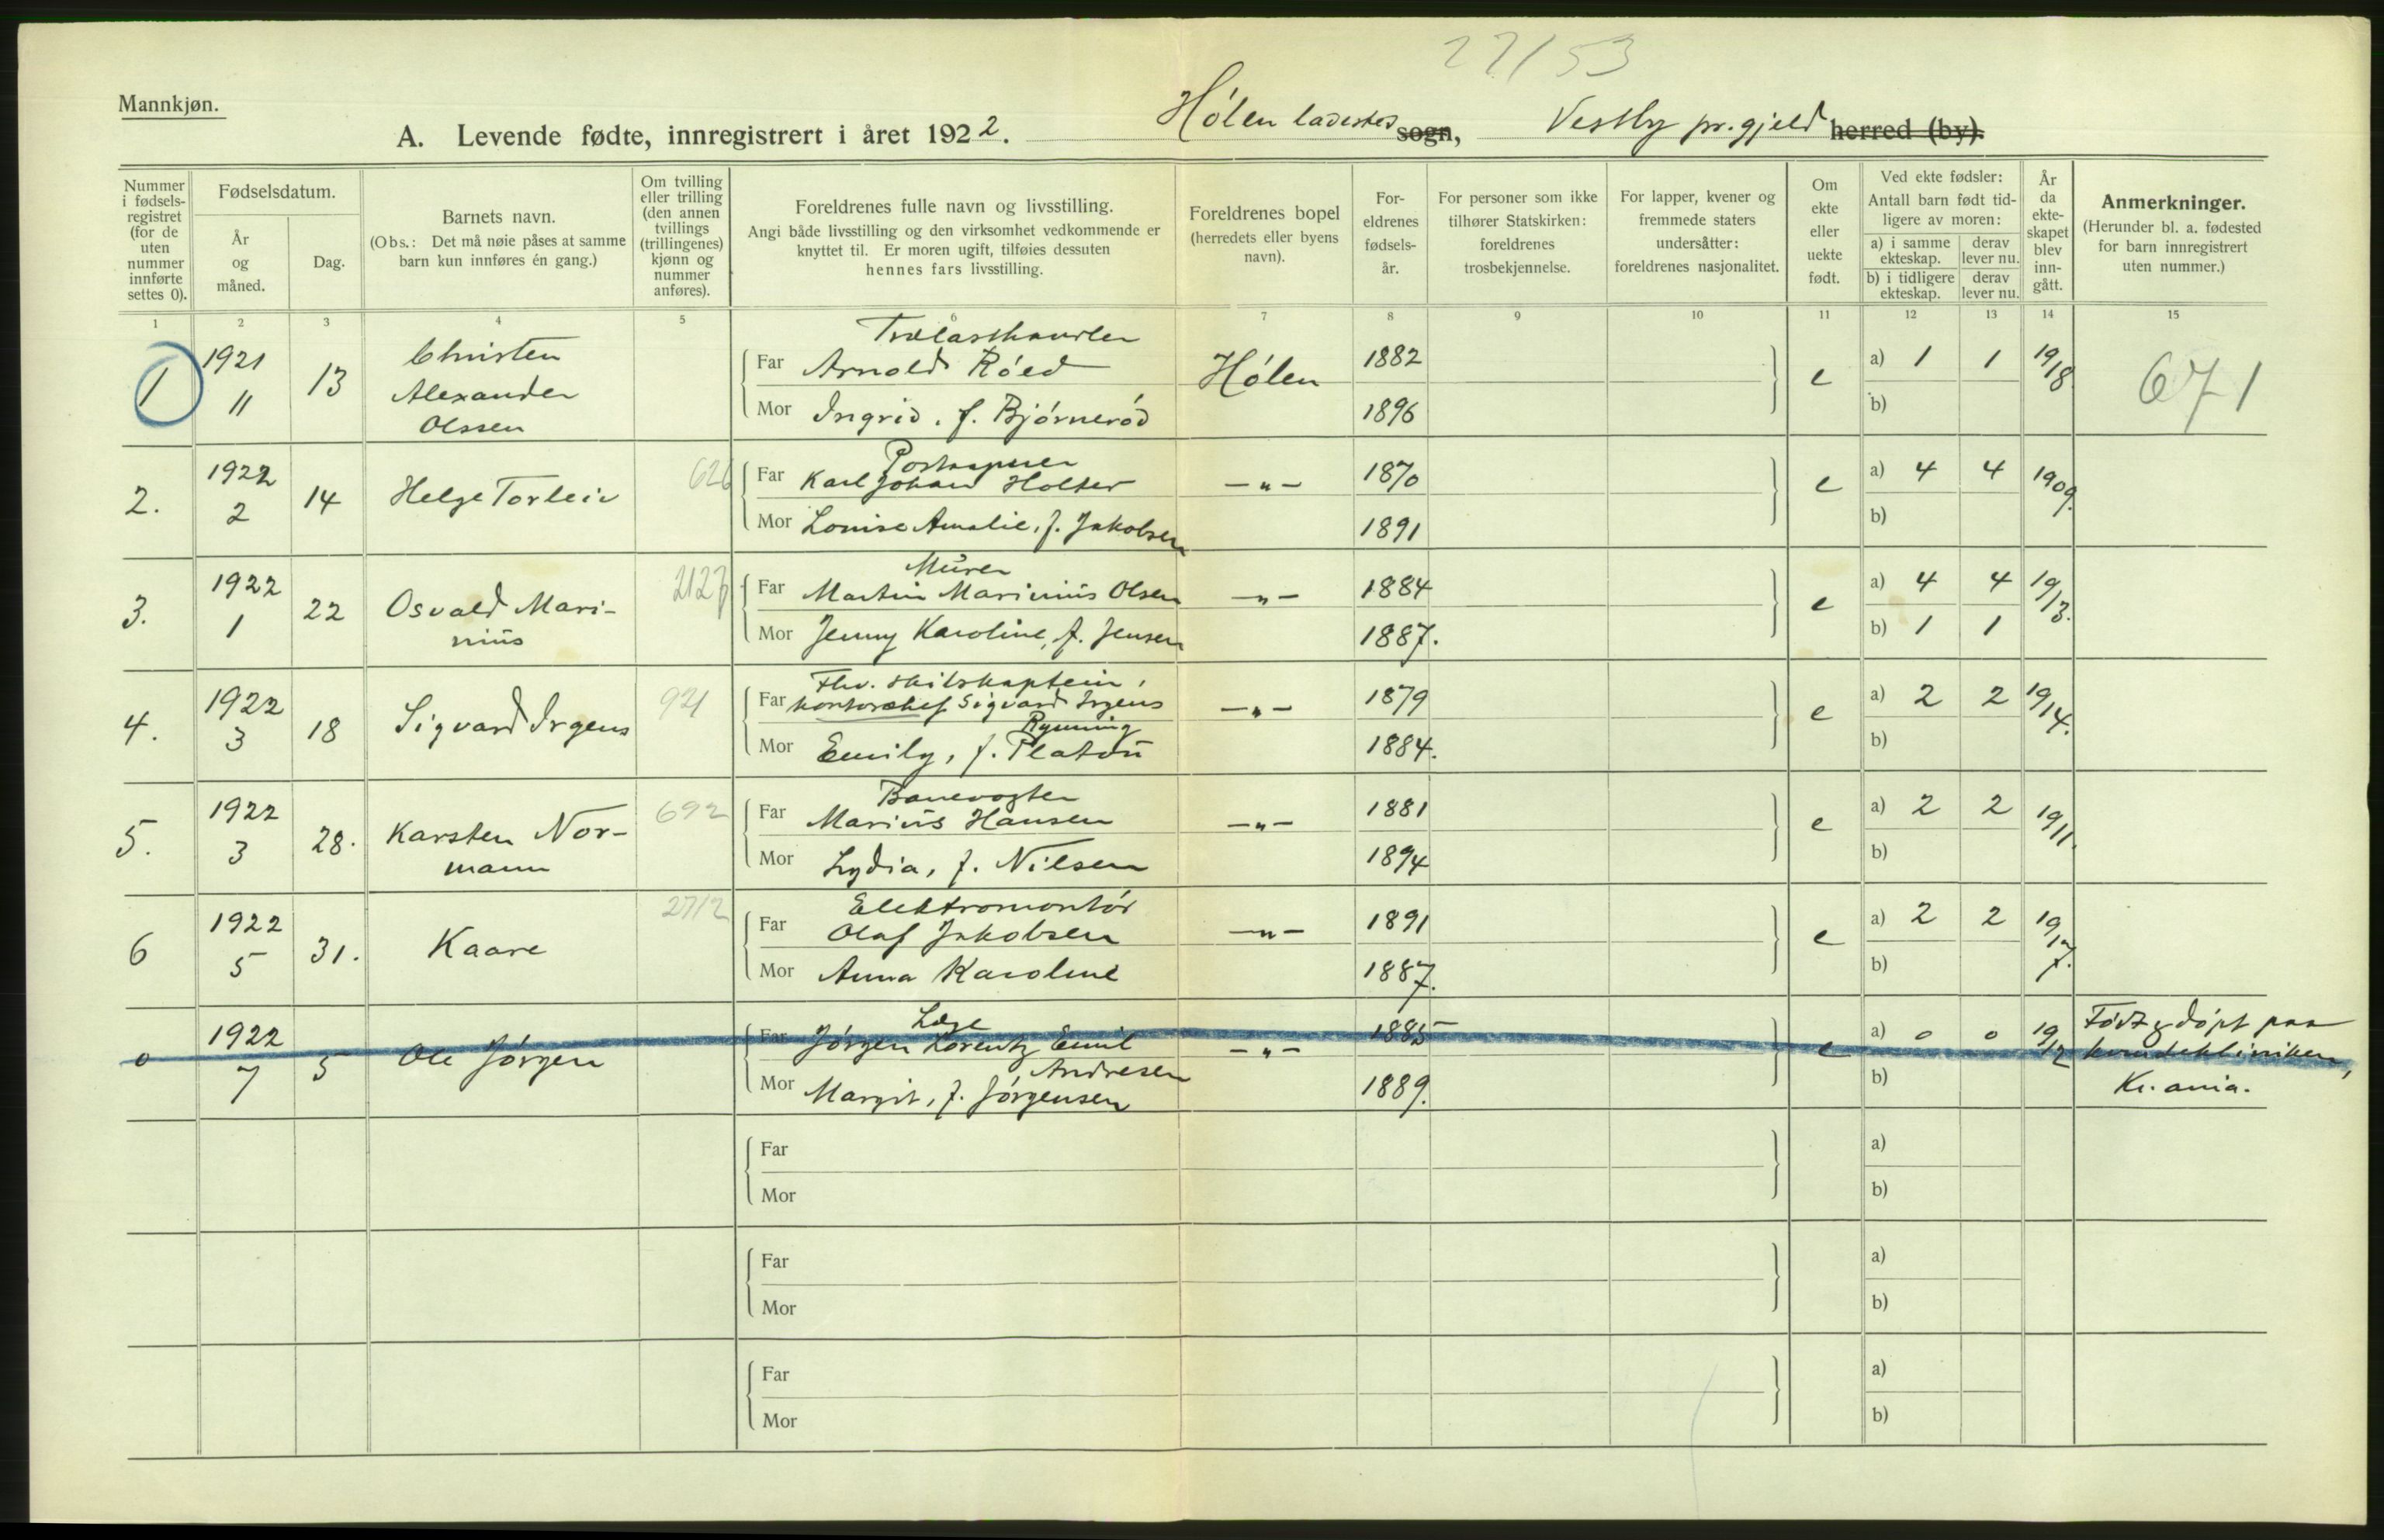 27/53
Mannkjøn.
A. Levende fødte, innregistrert i året 1922. Hólen ladested sogn, Vestby pr.gjeld herred (by).
Nummer i fødsels-registret (for de uten nummer innførte settes 0).
Fødselsdatum.
År og måned.
Dag.
Barnets navn.
(Obs.: Det må nøie påses at samme barn kun innføres én gang.)
Om tvilling eller trilling (den annen tvillings (trillingenes) kjønn og nummer anføres).
Foreldrenes fulle navn og livsstilling.
Angi både livsstilling og den virksomhet vedkommende er knyttet til. Er moren ugift, tilføies dessuten hennes fars livsstilling.
Foreldrenes bopel (herredets eller byens navn).
For-eldrenes fødsels-år.
For personer som ikke tilhører Statskirken: foreldrenes trosbekjennelse.
For lapper, kvener og fremmede staters undersåtter: foreldrenes nasjonalitet.
Om ekte eller uekte født.
Ved ekte fødsler: Antall barn født tid-ligere av moren:
a) i samme ekteskap. derav lever nu.
b) i tidligere ekteskap. derav lever nu.
År da ekte-skapet blev inn-gått.
Anmerkninger.
(Herunder bl. a. fødested for barn innregistrert uten nummer.)
1 2 3 4 5 6 7 8 9 10 11 12 13 14 15
Trælasthandler
1 1921 11 13 Christen Alexander Olssen
Far Arnold Róed Hólen 1882 e a) 1 1 1918 671
Mor Ingrid, f. Bjórneród 1896 b)
2. 1922 2 14 Helge Torleiv 626
Far Karl Johan Holter —"— 1870 e a) 4 4 1909.
Mor Louise Amalie, f. Jakobsen 1891 b)
Murer
3. 1922 1 22 Osvald Mari-nius 2127
Far Martin Marinius Olsen —"— 1884 e a) 4 4 1913.
Mor Jenny Karoline, f. Jensen 1887. b) 1 1
Fhv. skibskaptein,
4. 1922 3 18 Sigvard Irgens 921
Far kontorchef Sigvard Irgens —"— 1879 e a) 2 2 1914.
Rynning
Mor Emily, f. Platou 1884. b)
Banevogter
5. 1922 3 28. Karsten Nor-mann 692
Far Marius Hansen —"— 1881 e a) 2 2 1911.
Mor Lydia, f. Nilsen 1894 b)
Elektromontór
6 1922 5 31. Kaare 2712
Far Olaf Jakobsen —"— 1891 e a) 2 2 1917.
Mor Anna Karoline 1887. b)
Læge
0 1922 7 5 Ole Jórgen
Far Jórgen Lorentz Emil —"— 1885 e a) 0 0 1912 Fódt & dópt paa kvindeklinikken,
Andresen
Mor Margit, f. Jórgensen 1889. b) Kr.ania.
Far a)
Mor b)
Far a)
Mor b)
Far a)
Mor b)